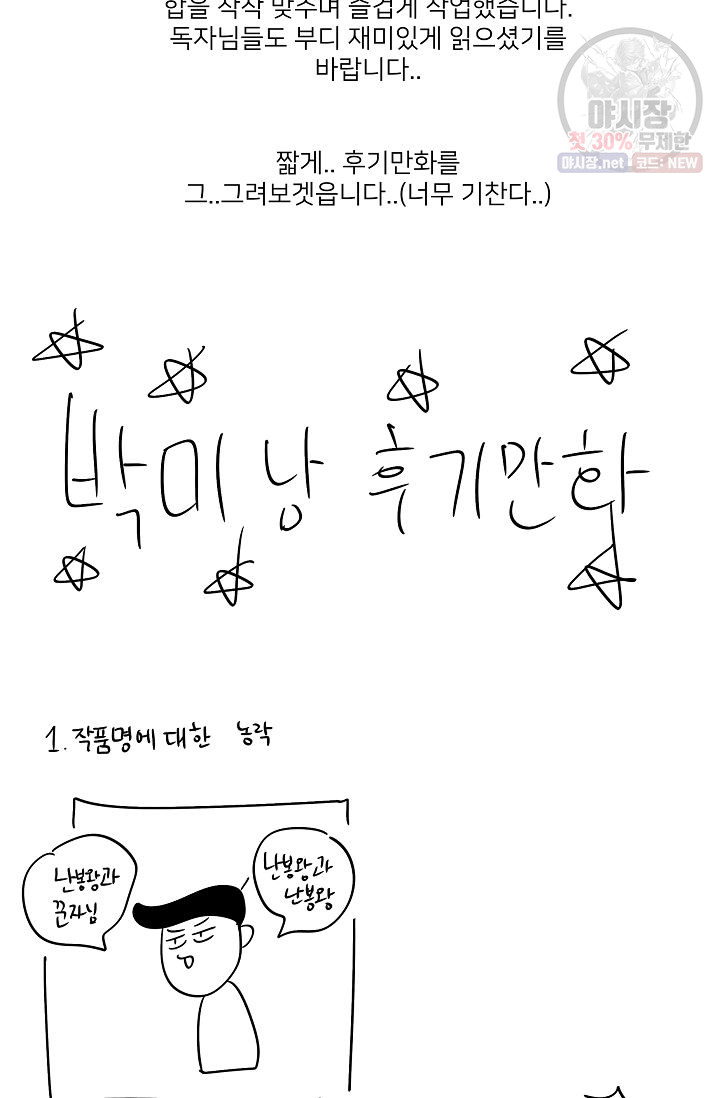 합을 착착 맞추며 즐겁게 작업했습니다.
독자님들도 부디 재미있게 읽으셨기를
바랍니다..
야시장
첫 30% 무제한
야시장.net 코드: NEW
짧게.. 후기만화를
그..그려보겟읍니다..(너무 기찬다..)
박미낭 후기만화
1. 작품명에 대한 농락
난봉왕과
꾼자님
난봉왕과
난봉왕